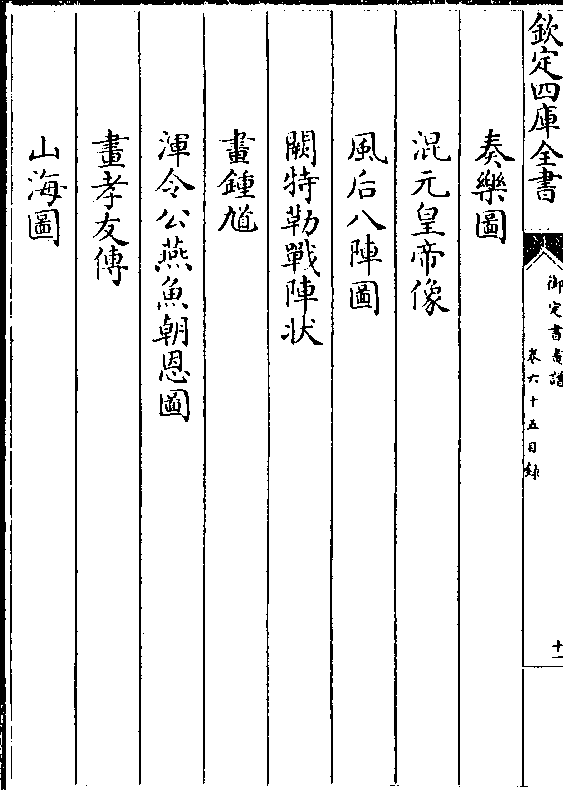 欽定四庫全書
御定書畫譜
卷六十五目錄
十一
奏樂圖
混元皇帝像
風后八陣圖
闕特勒戰陣狀
畫鍾馗
渾令公燕魚朝恩圖
畫孝友傳
山海圖